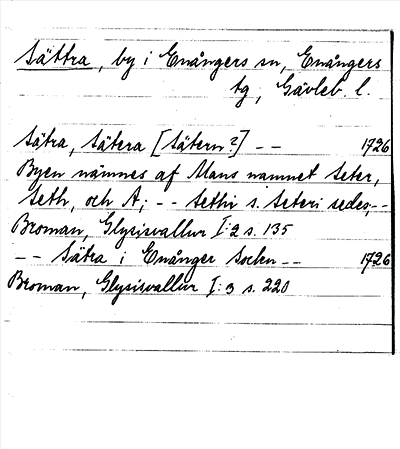 Sättra, by i Enångers sn, Enångers
tg, Gävleb. l.
Sätra, Sätera [Sätern?] -- 1726
Byen nämnes af Mans namnet Seter,
Seth, och A; -- Sethr s. Seteri sedes, --
Broman, Glysisvallur I:2 s. 135
-- Sätra i Enånger Sockn -- 1726
Broman, Glysisvallur I:3 s. 220